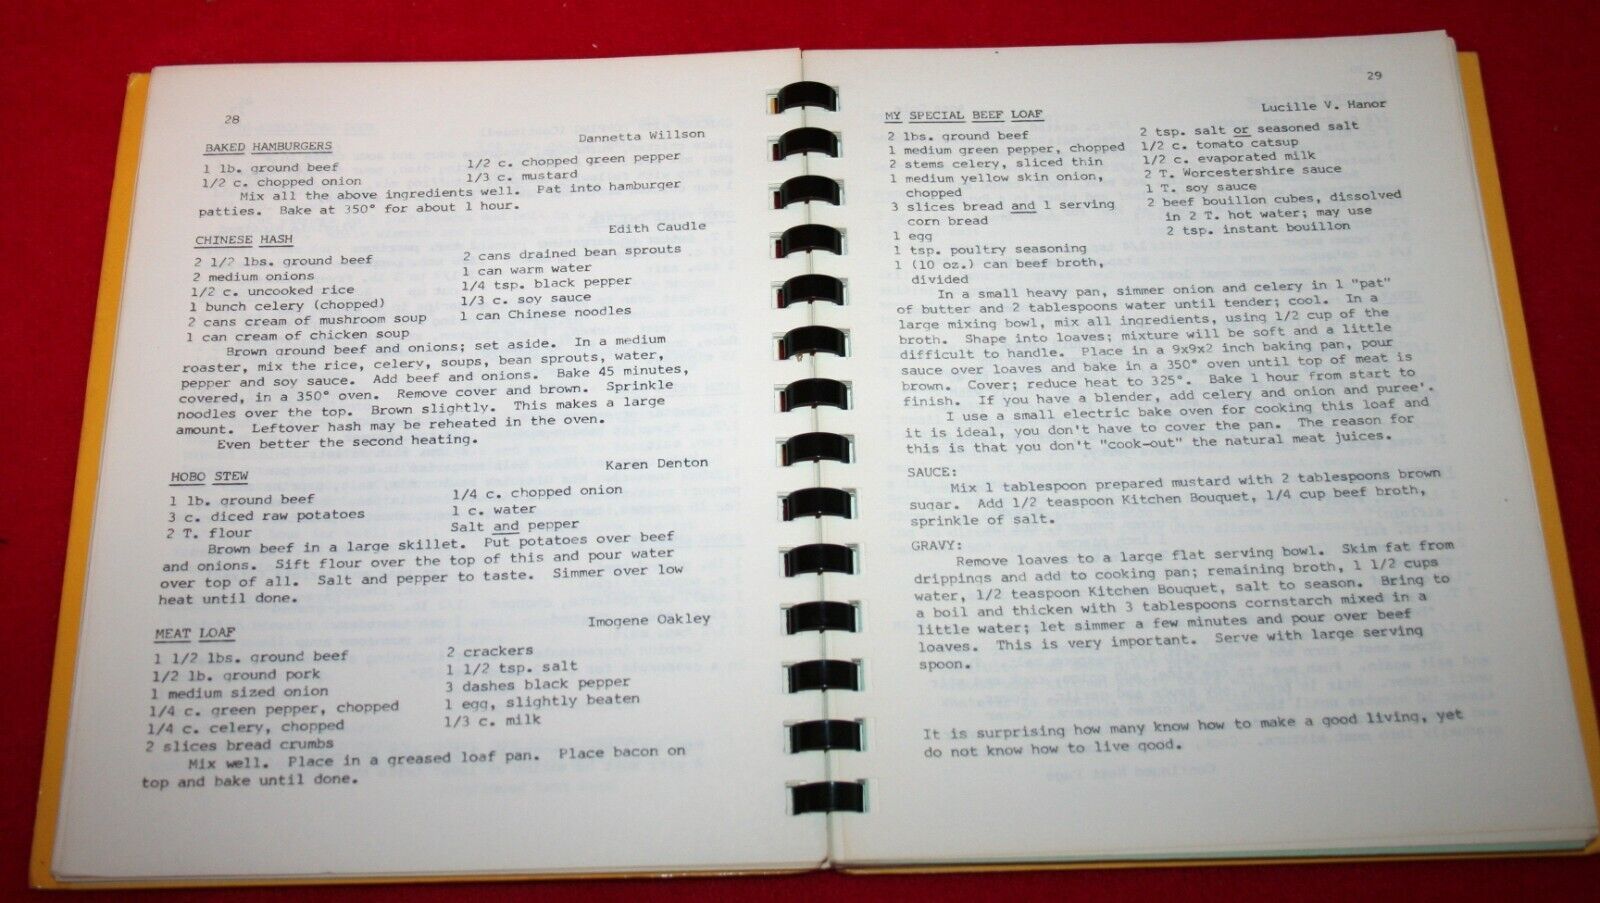 28
Dannetta Willson
BAKED HAMBURGERS
1 lb. ground beef
1/2 c. chopped onion
1/2 c. chopped green pepper
1/3 c. mustard
Mix all the above ingredients well. Pat into hamburger
patties. Bake at 350° for about 1 hour.
Edith Caudle
CHINESE HASH
2 1/2 lbs. ground beef
2 medium onions
1/2 c. uncooked rice
1 bunch celery (chopped)
2 cans cream of mushroom soup
1 can cream of chicken soup
2 cans drained bean sprouts
1 can warm water
1/4 tsp. black pepper
1/3 c. soy sauce
1 can Chinese noodles
Brown ground beef and onions; set aside. In a medium
roaster, mix the rice, celery, soups, bean sprouts, water,
pepper and soy sauce. Add beef and onions. Bake 45 minutes,
covered, in a 350° oven. Remove cover and brown. Sprinkle
noodles over the top. Brown slightly. This makes a large
amount. Leftover hash may be reheated in the oven.
Even better the second heating.
Karen Denton
HOBO STEW
1 lb. ground beef
3 c. diced raw potatoes
2 T. flour
1/4 c. chopped onion
1 c. water
Salt and pepper
Brown beef in a large skillet. Put potatoes over beef
and onions. Sift flour over the top of this and pour water
over top of all. Salt and pepper to taste. Simmer over low
heat until done.
Imogene Oakley
MEAT LOAF
1 1/2 lbs. ground beef
1/2 lb. ground pork
1 medium sized onion
1/4 c. green pepper, chopped
1/4 c. celery, chopped
2 slices bread crumbs
2 crackers
1 1/2 tsp. salt
3 dashes black pepper
1 egg, slightly beaten
1/3 c. milk
Mix well. Place in a greased loaf pan. Place bacon on
top and bake until done.
29
Lucille V. Hanor
MY SPECIAL BEEF LOAF
2 lbs. ground beef
1 medium green pepper, chopped
2 stems celery, sliced thin
1 medium yellow skin onion,
chopped
3 slices bread and 1 serving
corn bread
1 egg
1 tsp. poultry seasoning
1 (10 oz.) can beef broth,
divided
2 tsp. salt or seasoned salt
1/2 c. tomato catsup
1/2 c. evaporated milk
2 T. Worcestershire sauce
1 T. soy sauce
2 beef bouillon cubes, dissolved
in 2 T. hot water; may use
2 tsp. instant bouillon
In a small heavy pan, simmer onion and celery in 1 "pat"
of butter and 2 tablespoons water until tender; cool. In a
large mixing bowl, mix all ingredients, using 1/2 cup of the
broth. Shape into loaves; mixture will be soft and a little
difficult to handle. Place in a 9x9x2 inch baking pan, pour
sauce over loaves and bake in a 350° oven until top of meat is
brown. Cover; reduce heat to 325°. Bake 1 hour from start to
finish. If you have a blender, add celery and onion and puree'.
I use a small electric bake oven for cooking this loaf and
it is ideal, you don't have to cover the pan. The reason for
this is that you don't "cook-out" the natural meat juices.
SAUCE:
Mix 1 tablespoon prepared mustard with 2 tablespoons brown
sugar. Add 1/2 teaspoon Kitchen Bouquet, 1/4 cup beef broth,
sprinkle of salt.
GRAVY:
Remove loaves to a large flat serving bowl. Skim fat from
drippings and add to cooking pan; remaining broth, 1 1/2 cups
water, 1/2 teaspoon Kitchen Bouquet, salt to season. Bring to
a boil and thicken with 3 tablespoons cornstarch mixed in a
little water; let simmer a few minutes and pour over beef
loaves. This is very important. Serve with large serving
spoon.
It is surprising how many know how to make a good living, yet
do not know how to live good.